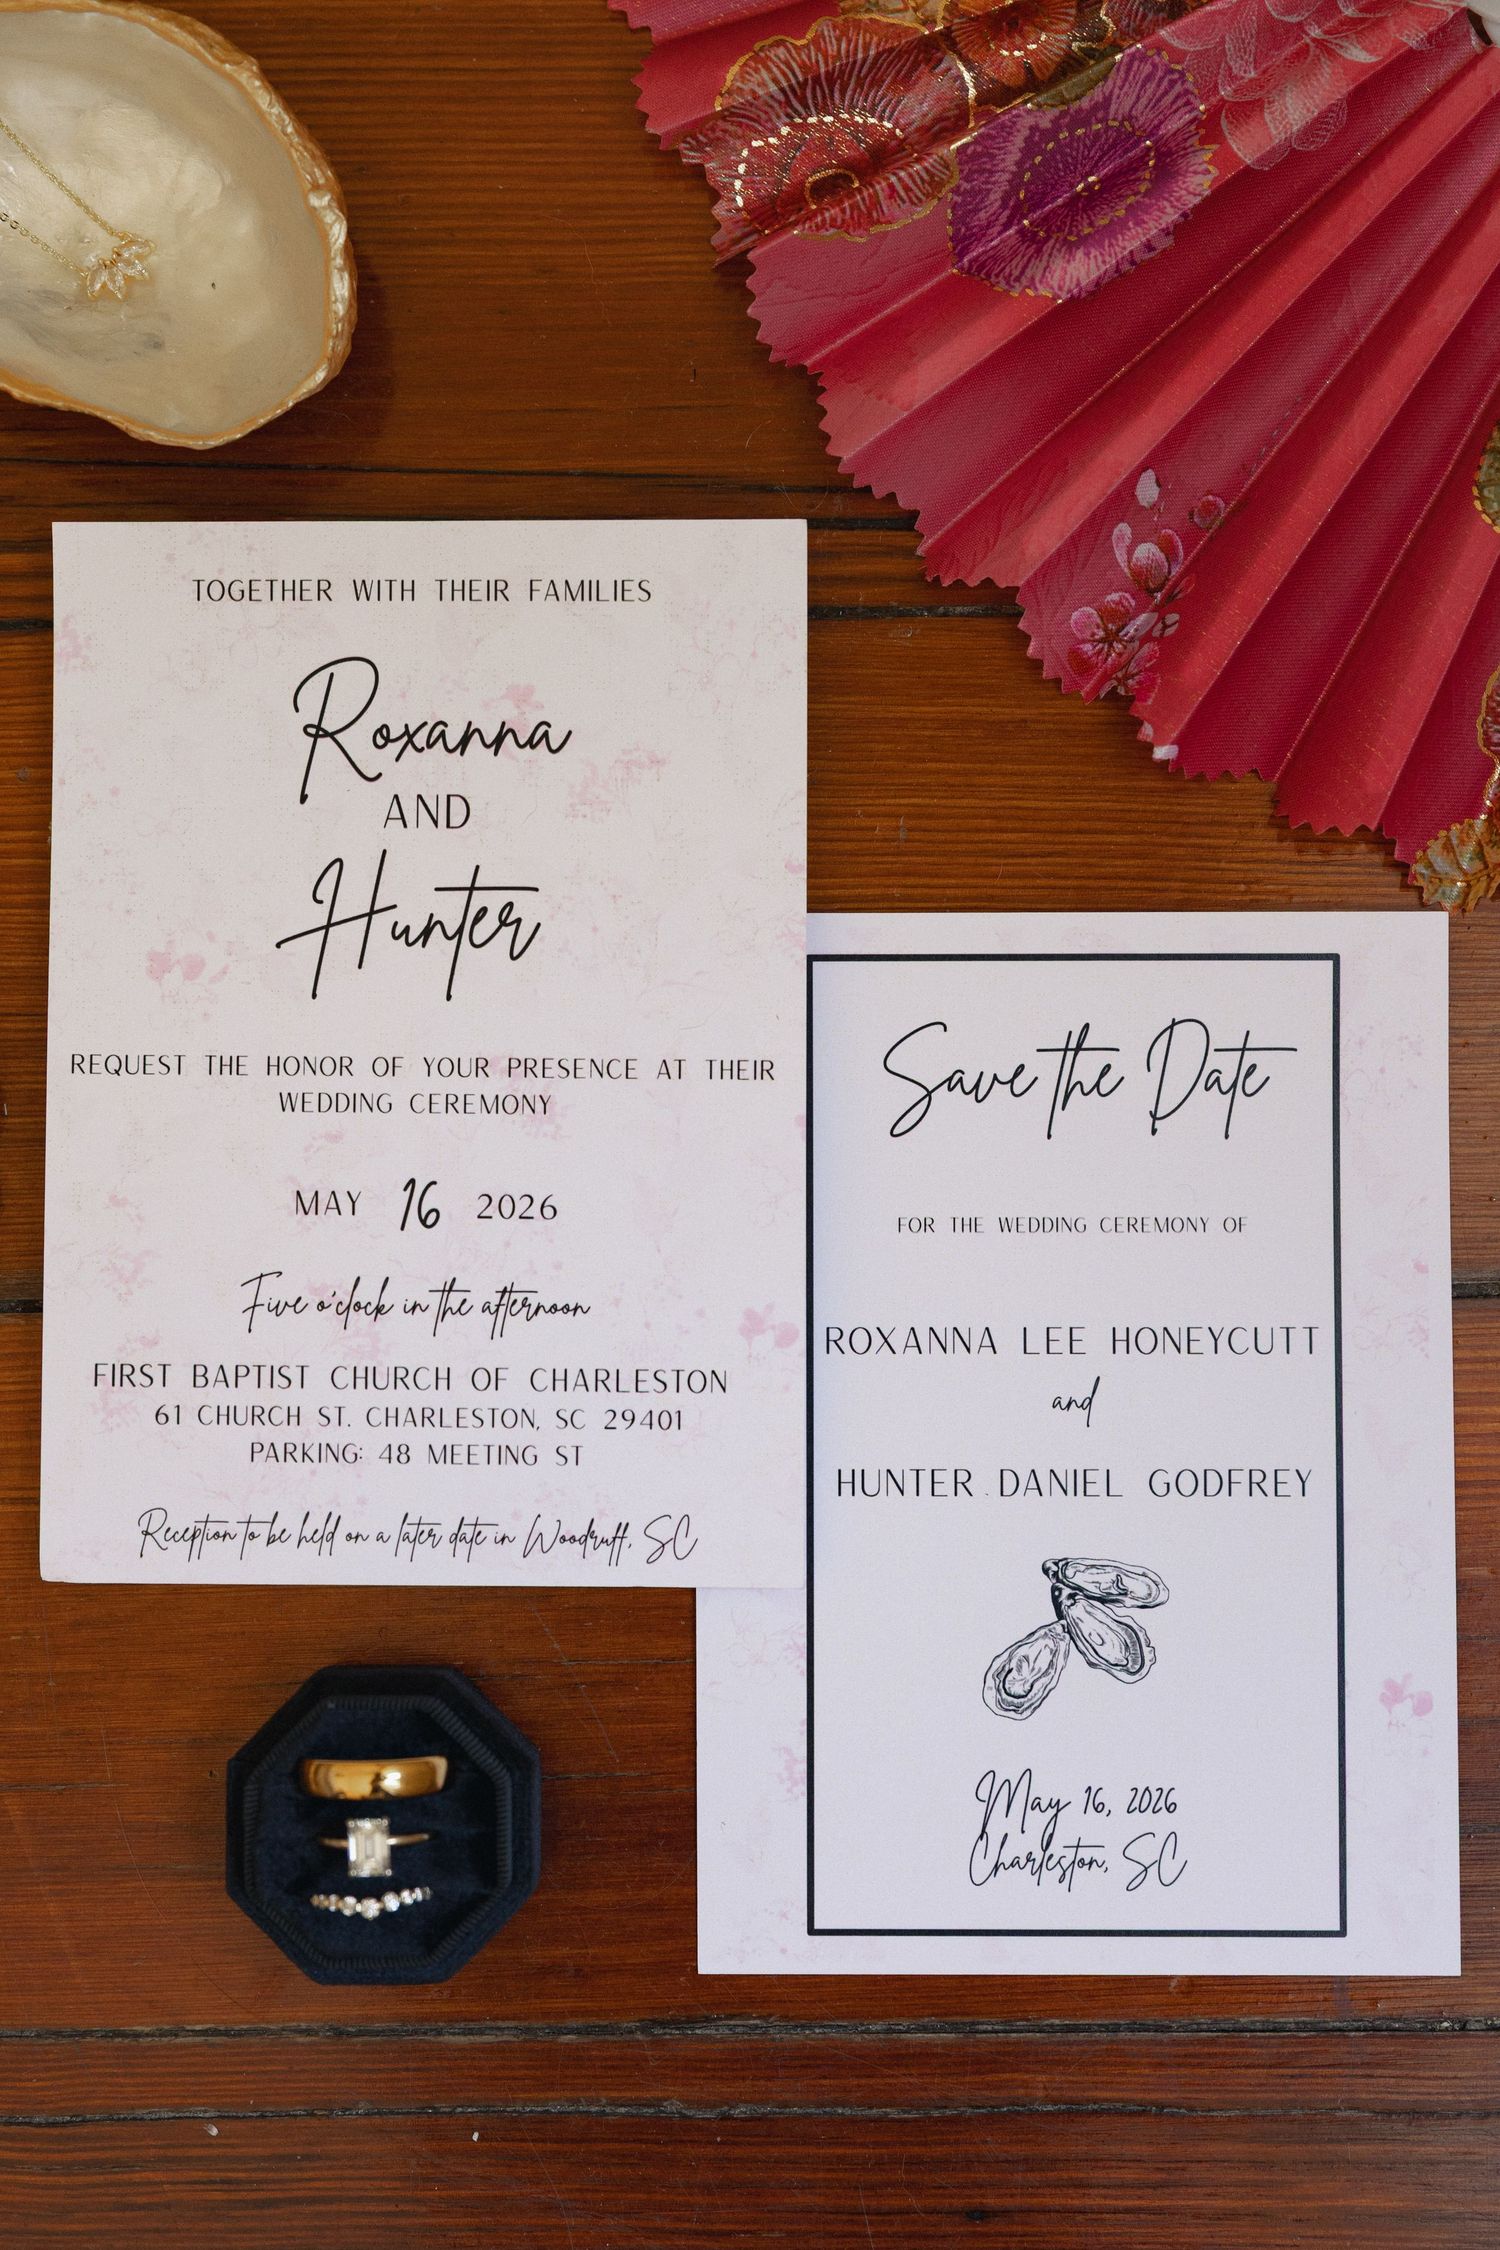 TOGETHER WITH THEIR FAMILIES
Roxanna
AND
Hunter
REQUEST THE HONOR OF YOUR PRESENCE AT THEIR
WEDDING CEREMONY
MAY 16 2026
Five o'clock in the afternoon
FIRST BAPTIST CHURCH OF CHARLESTON
61 CHURCH ST. CHARLESTON, SC 29401
PARKING: 48 MEETING ST
Reception to be held on a later date in Woodruff, SC
Save the Date
FOR THE WEDDING CEREMONY OF
ROXANNA LEE HONEYCUTT
and
HUNTER DANIEL GODFREY
May 16, 2026
Charleston, SC